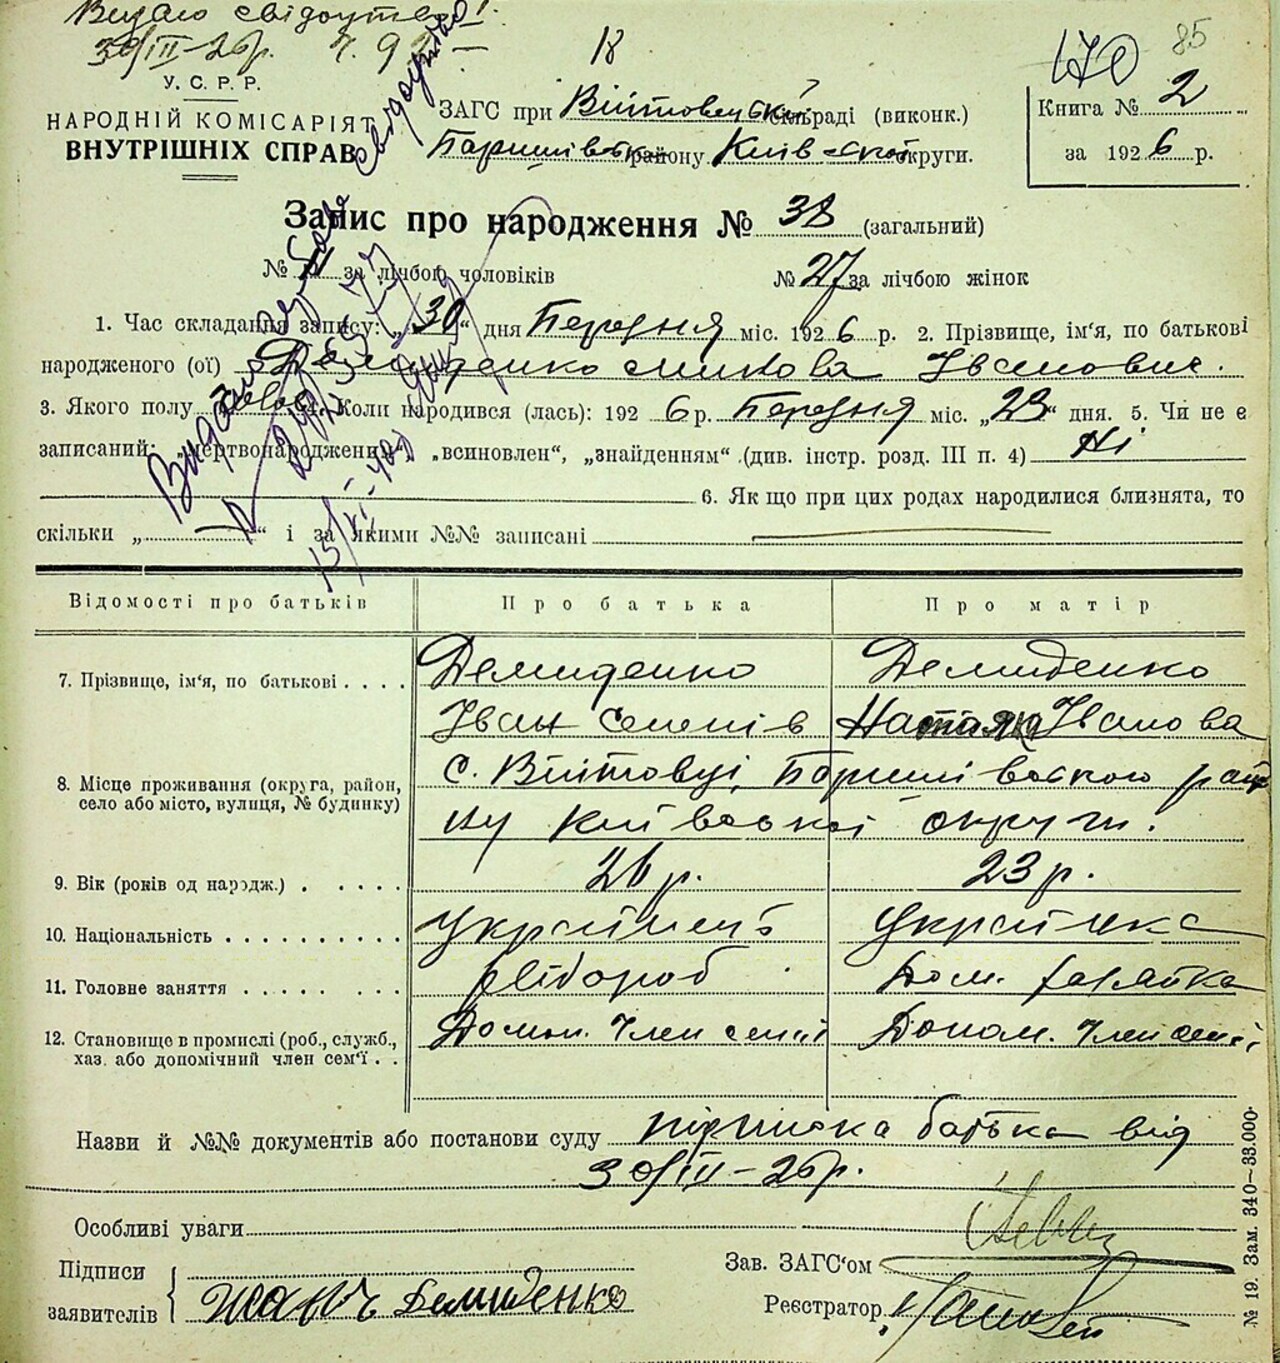 Видано свідоцтво
30/III-26р. ч. 92
18
170 85
У. С. Р. Р.
НАРОДНІЙ КОМІСАРІЯТ
ВНУТРІШНІХ СПРАВ
ЗАГС при Війтовецькій сільраді (виконк.)
Баришівськ району Київської округи.
Книга № 2
за 1926 р.
Запис про народження № 38 (загальний)
№ 11 за лічбою чоловіків № 27 за лічбою жінок
1. Час складання запису: „30“ дня Березня міс. 1926 р. 2. Прізвище, ім'я, по батькові
народженого (ої) Демиденко Микола Іванович.
3. Якого полу 4. Коли народився (лась): 1926 р. Березня міс. „23“ дня. 5. Чи не є
записаний: „мертвонародженим“, „всиновлен“, „знайденням“ (див. інстр. розд. III п. 4) Ні
6. Як що при цих родах народилися близнята, то
скільки „ “ і за якими №№ записані
Видано
15/XI-
Відомості про батьків Про батька Про матір
7. Прізвище, ім'я, по батькові . . . . Демиденко Демиденко
Іван Семенів Наталка Іванова
8. Місце проживання (округа, район, село або місто, вулиця, № будинку) с. Війтовці, Баришівського райо
ну Київської округи.
9. Вік (років од народж.) . . . . . 26 р. 23 р.
10. Національність . . . . . . . . . . Українець Українка
11. Головне заняття . . . . . . . . хлібороб Дом. хазяйка
12. Становище в промислі (роб., служб., хаз. або допомічний член сем'ї . . Допом. член семії Допом. член семії
Назви й №№ документів або постанови суду підписка батька від
30/III-26р.
Особливі уваги
Підписи
заявителів Иванъ Демиденко
Зав. ЗАГС'ом
Реєстратор
№ 19. Зам. 340—33.000